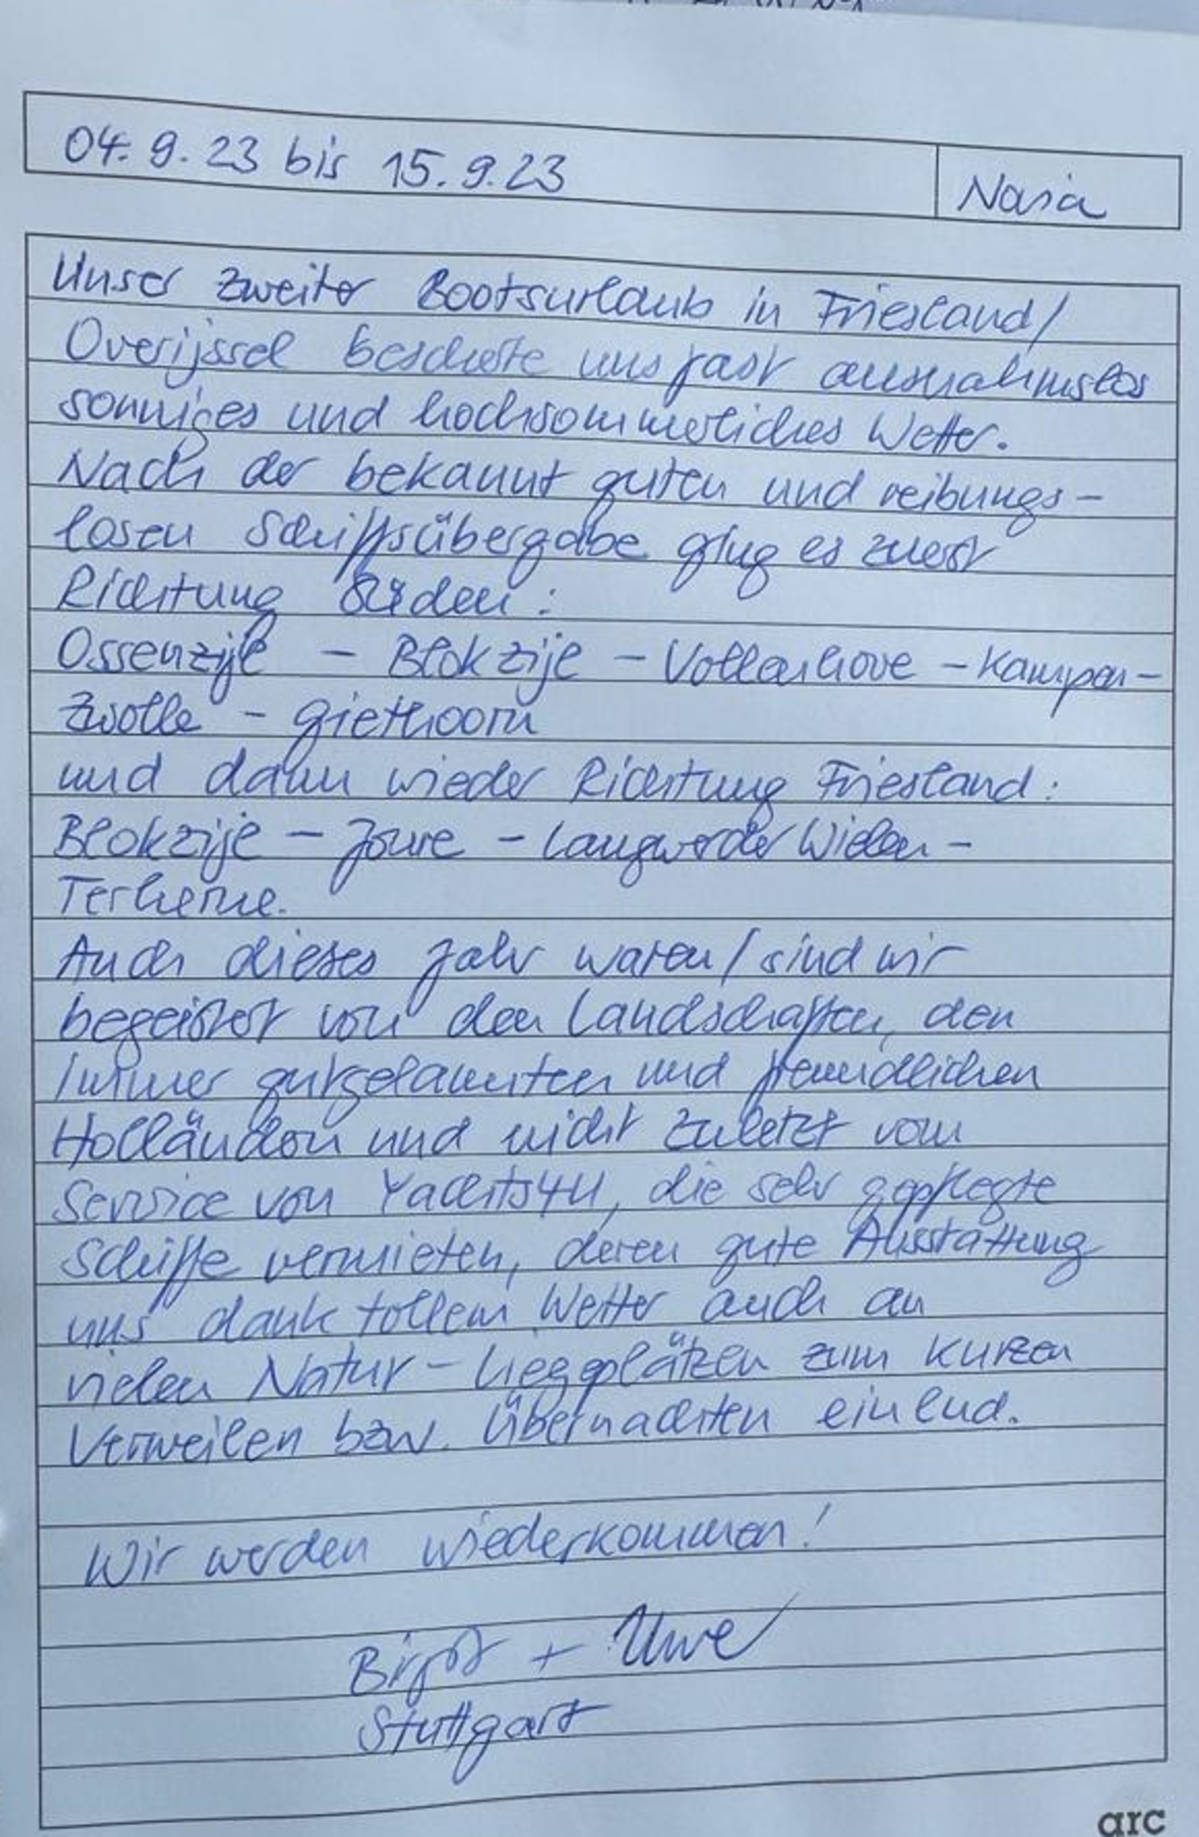 04.9.23 bis 15.9.23
Nasia
Unser zweiter Bootsurlaub in Friesland/
Overijssel bescherte uns fast ausnahmslos
sonniges und hochsommerliches Wetter.
Nach der bekannt guten und reibungs-
losen Schiffsübergabe ging es zuerst
Richtung Süden:
Ossenzijl - Blokzijl - Vollenhove - Kampen -
Zwolle - Giethoorn
und dann wieder Richtung Friesland:
Blokzijl - Joure - Langweerder Wielen -
Terherne.
Auch dieses Jahr waren/sind wir
begeistert von den Landschaften, den
immer gutgelaunten und freundlichen
Holländern und nicht zuletzt vom
Service von Yachts4U, die sehr gepflegte
Schiffe vermieten, deren gute Ausstattung
uns dank tollem Wetter auch an
vielen Natur-Liegeplätzen zum kurzen
Verweilen bzw. Übernachten einlud.
Wir werden wiederkommen!
Birgit + Uwe
Stuttgart
arc